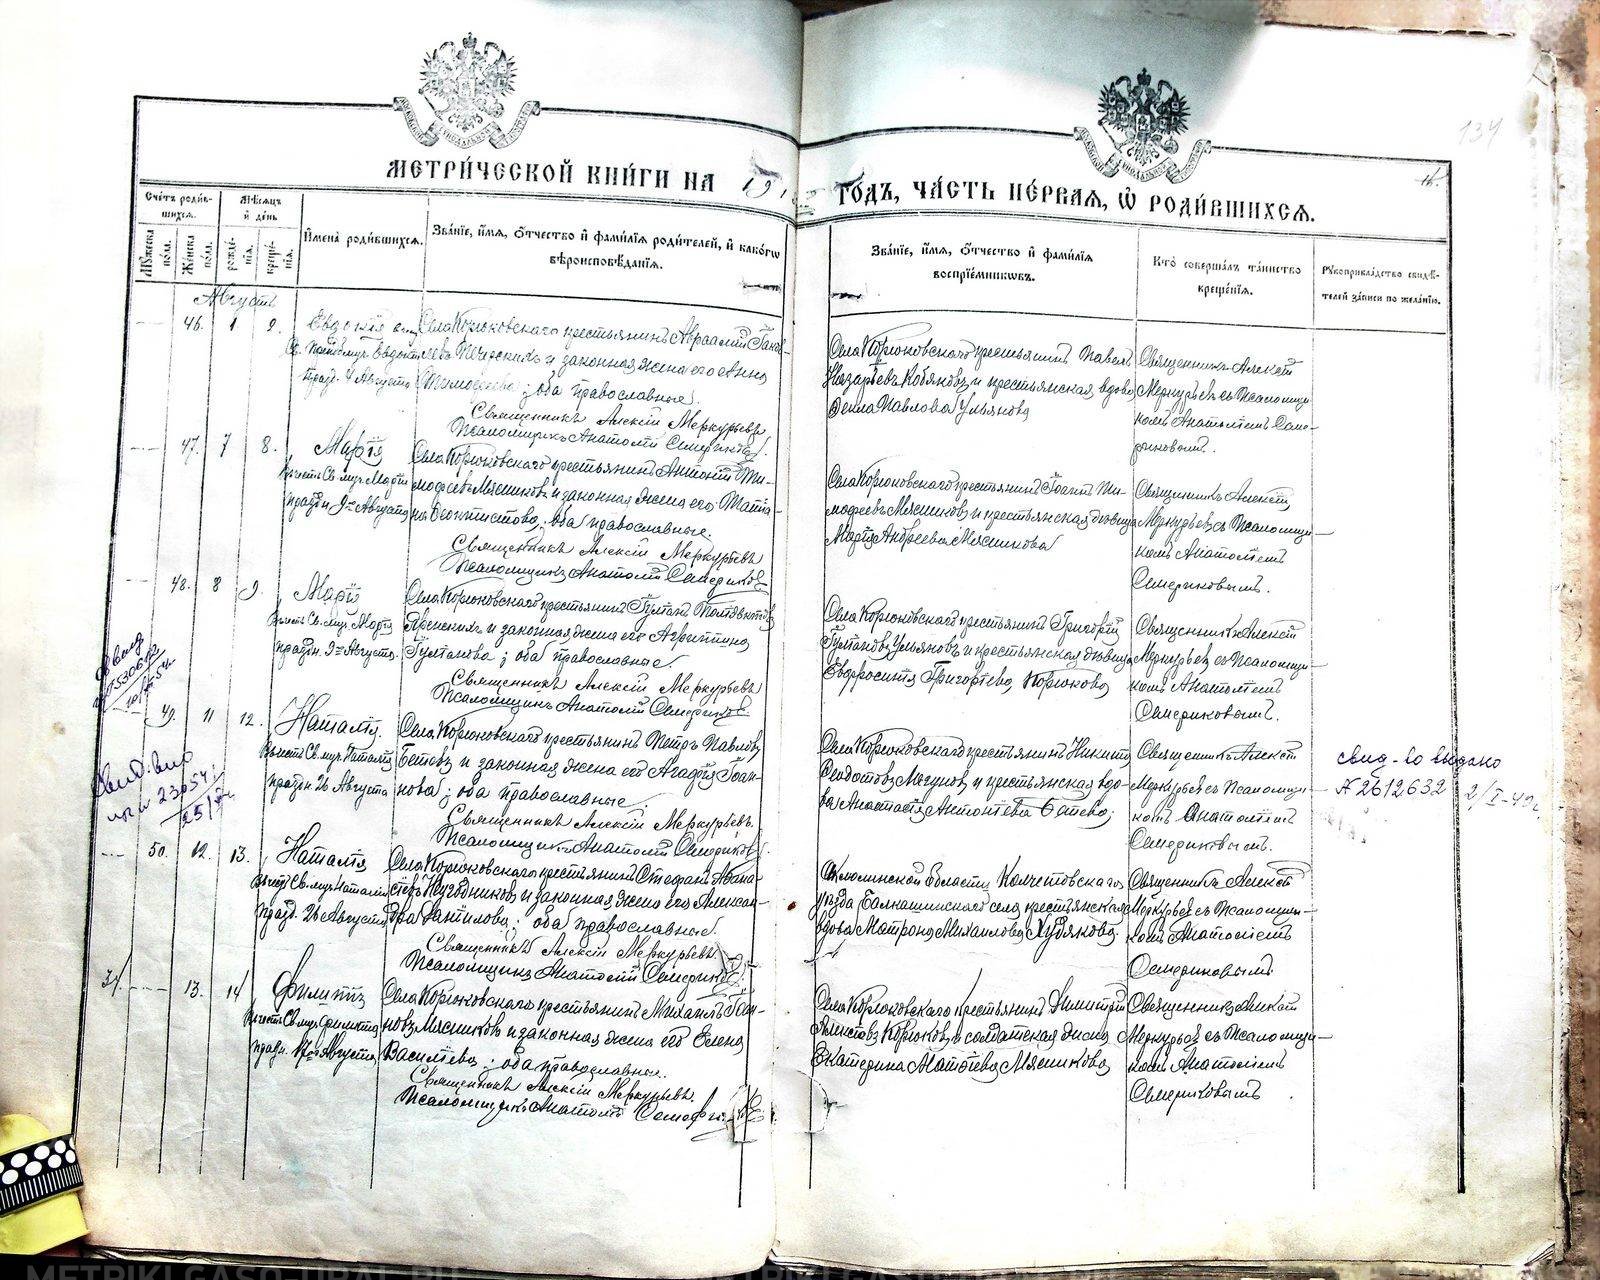 134
МЕТРИ́ЧЕСКОЙ КНИ́ГИ НА 191
ГОДЪ, ЧА́СТЬ ПЕ́РВАЯ, Ѡ҆ РОДИ́ВШИХСЯ.
Сче́тъ роди́в-
шихся.
Мѣ́сяцъ
и҆ де́нь
Му́жеска по́ла.
Же́нска по́ла.
рожде́-
нія.
креще́-
нія.
И҆мена̀ роди́вшихся.
Зва́ніе, и҆́мя, ѻ҆́тчество и҆ фами́лія роди́телей, и҆ како́гѡ
вѣроисповѣ́данія.
Зва́ніе, и҆́мя, ѻ҆́тчество и҆ фами́лія
воспріе́мникѡвъ.
Кто̀ соверша́лъ та́инство
креще́нія.
Рꙋкоприкла́дство свидѣ́-
телей за́писи по жела́нію.
Августъ
46. 1 2. Евдокія
Села Корюковскаго крестьянинъ Авраамій
и законная жена его Анна
Тимофеева; оба православные.
празд. 4 Августа
Священникъ Алексій Меркурьевъ
Псаломщикъ Анатолій Семериковъ.
Села Корюковскаго крестьянинъ Павелъ
Назарьевъ Кобяковъ и крестьянская вдова
Ѳекла Павлова Ульянова
Священникъ Алексій
Меркурьевъ съ Псаломщи-
комъ Анатоліемъ Семе-
риковымъ.
47. 7 8. Марія
Въ честь Св. муч. Маріи
праздн. 9го Августа
Села Корюковскаго крестьянинъ Антоній Ти-
мофеевъ Мясниковъ и законная жена его Татіа-
на Ѳеоктистова; оба православные.
Священникъ Алексій Меркурьевъ
Псаломщикъ Анатолій Семериковъ
Села Корюковскаго крестьянинъ Іоаннъ Ти-
мофеевъ Мясниковъ и крестьянская дѣвица
Марія Андреева Мясникова
Священникъ Алексій
Меркурьевъ съ Псаломщи-
комъ Анатоліемъ
Семериковымъ.
48. 8 9. Марія
Въ честь Св. муч. Маріи
праздн. 9го Августа
Села Корюковскаго крестьянинъ Іуліанъ
и законная жена его Агриппина
Іуліанова; оба православные.
Священникъ Алексій Меркурьевъ
Псаломщикъ Анатолій Семериковъ.
Села Корюковскаго крестьянинъ Григорій
Іуліановъ Ульяновъ и крестьянская дѣвица
Евфросинія Григоріева Корюкова
Священникъ Алексій
Меркурьевъ съ Псаломщи-
комъ Анатоліемъ
Семериковымъ.
49. 11 12. Наталія.
Въ честь Св. муч. Наталіи
праздн 26 Августа
Села Корюковскаго крестьянинъ Петръ Павловъ
и законная жена его Агафія Іоан-
нова; оба православные.
Священникъ Алексій Меркурьевъ.
Псаломщикъ Анатолій Семериковъ.
Села Корюковскаго крестьянинъ Никита
Ѳеодотовъ и крестьянская вдо-
ва Анастасія Антоніева
Священникъ Алексій
Меркурьевъ съ Псаломщи-
комъ Анатоліемъ
Семериковымъ.
свид-во выдано
№ 2612632 2/I-49г.
50. 12. 13. Наталія
Въ честь Св. муч. Наталіи
празд. 26 Августа
Села Корюковскаго крестьянинъ Стефанъ Аѳана-
сіевъ и законная жена его Алексан-
дра Данилова; оба православные.
Священникъ Алексій Меркурьевъ.
Псаломщикъ Анатолій Семериковъ.
Акмолинской Области Кокчетовскаго
уѣзда Балкашинскаго села крестьянская
вдова Матрона Михаилова Худякова
Священникъ Алексій
Меркурьевъ съ Псаломщи-
комъ Анатоліемъ
Семериковымъ
13. 14 Филиппъ
Въ честь Св. муч. Филиппа
праздн. 17го Августа
Села Корюковскаго крестьянинъ Михаилъ Іоан-
новъ Мясниковъ и законная жена его Елена
Василіева; оба православные.
Священникъ Алексій Меркурьевъ.
Псаломщикъ Анатолій
Села Корюковскаго крестьянинъ Димитрій
Корюковъ и солдатская жена
Екатерина Матѳіева Мясникова
Священникъ Алексій
Меркурьевъ съ Псаломщи-
комъ Анатоліемъ
Семериковымъ
METRIKI.GASO-URAL.RU